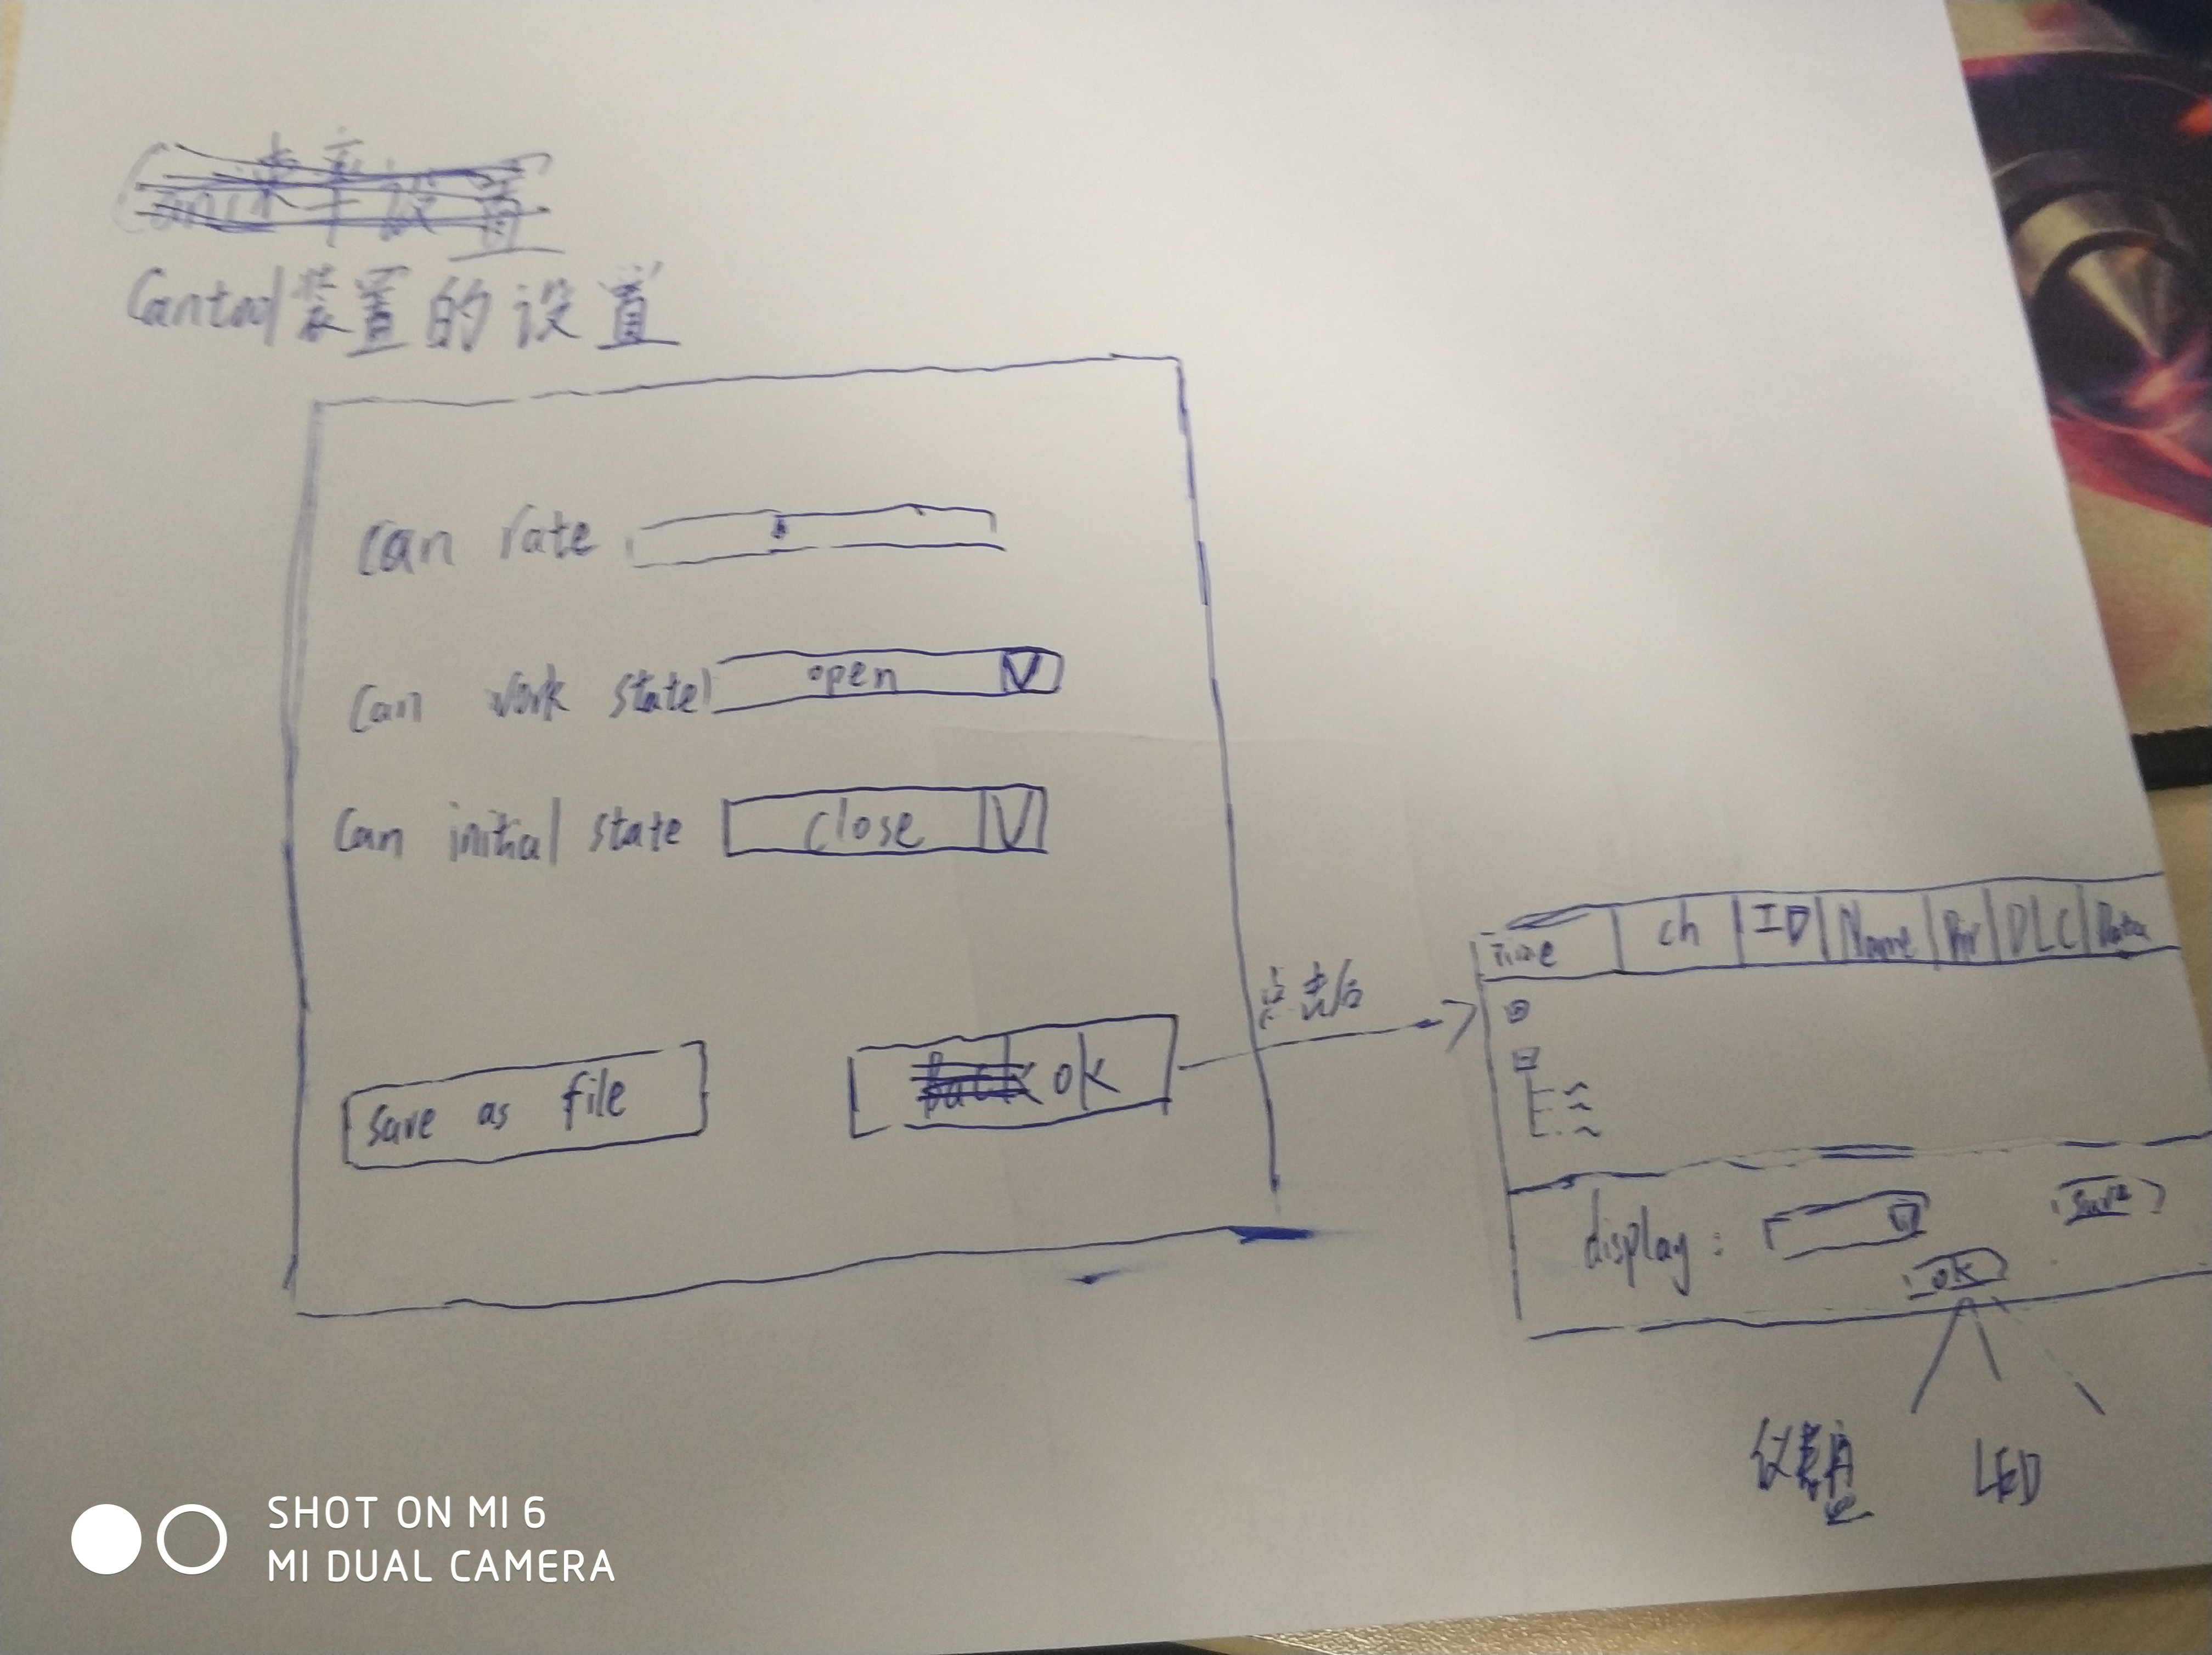 Cantool装置的设置
can rate
can work state open
can initial state close
save as file
ok
点击后
Time ch ID Name Dir DLC Data
display:
save
ok
仪表盘
LED
SHOT ON MI 6
MI DUAL CAMERA